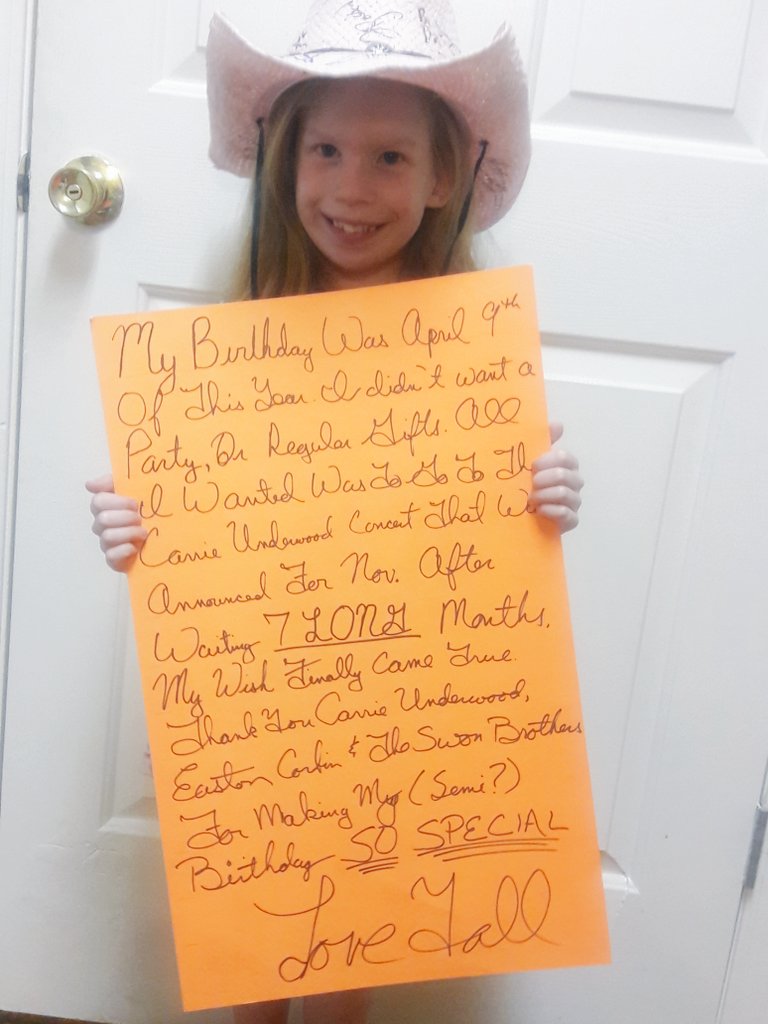 My Birthday Was April 9th
Of This Year. I didn't want a
Party, Or Regular Gifts. All
I Wanted Was To Go To Th
Carrie Underwood Concert That W
Announced For Nov. After
Waiting 7 LONG Months,
My Wish Finally Came True.
Thank You Carrie Underwood,
Easton Corbin & The Swon Brothers
For Making My (Semi?)
Birthday SO SPECIAL
Love Fall